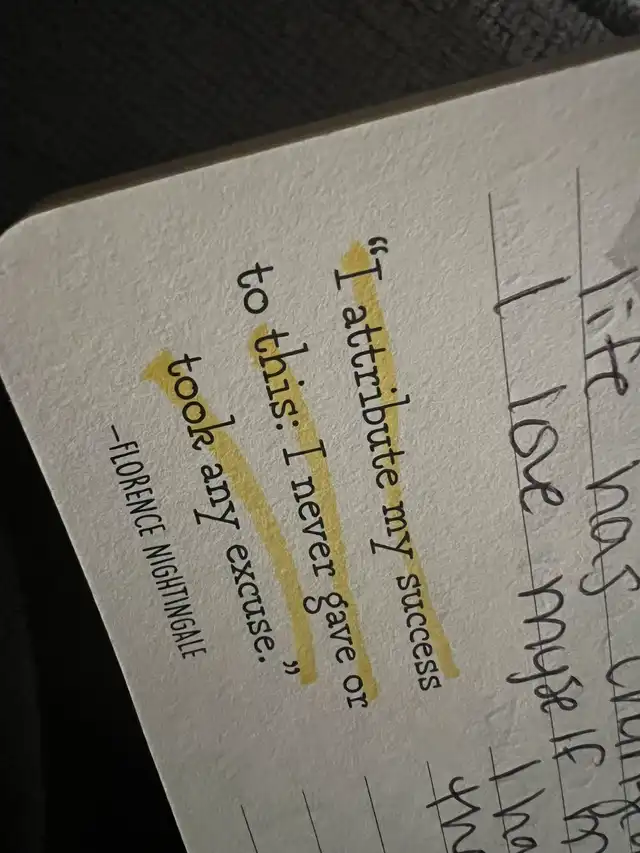 life has
I love myself
I
"I attribute my success
to this: I never gave or
took any excuse."
—FLORENCE NIGHTINGALE